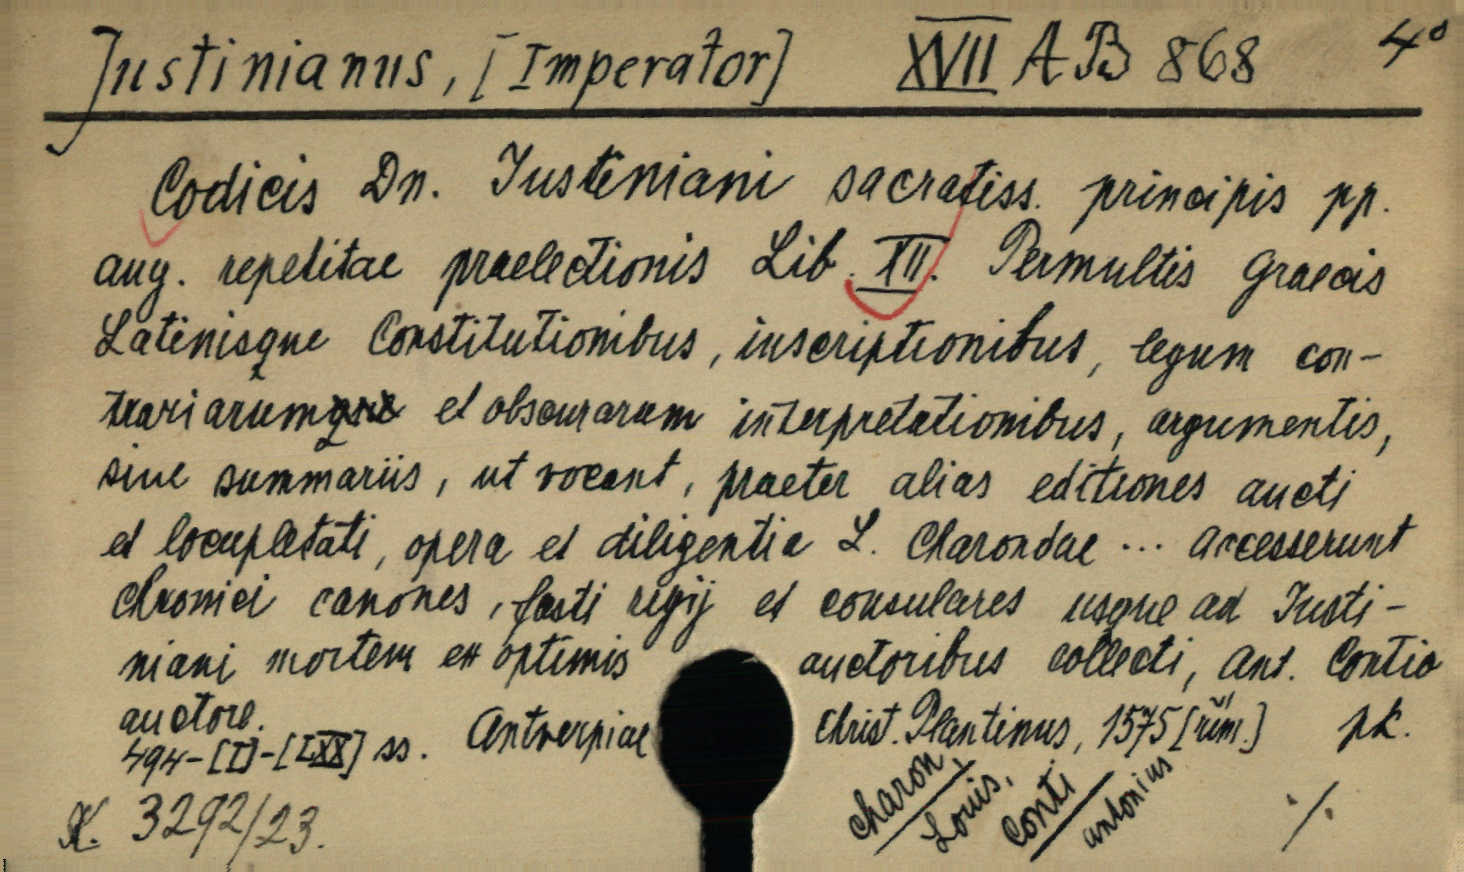 Justinianus, [Imperator] XVII AB 868 4°
Codicis Dn. Iustiniani sacratiss. principis pp.
aug. repetitae praelectionis Lib. XII. Permultis Graecis
Latinisque Constitutionibus, inscriptionibus, legum con-
trariarum et obscurarum interpretationibus, argumentis,
sive summariis, ut vocant, praeter alias editiones aucti
et locupletati, opera et diligentia L. Charondae ... accesserunt
chronici canones, fasti regij et consulares usque ad Iusti-
niani mortem ex optimis auctoribus collecti, Ant. Contio
auctore. Antverpiae Christ. Plantinus, 1575 [rím.] pk.
494-[I]-[LXX] ss.
K. 3292/23.
Charon,
Louis,
Conti
antonius
·/.